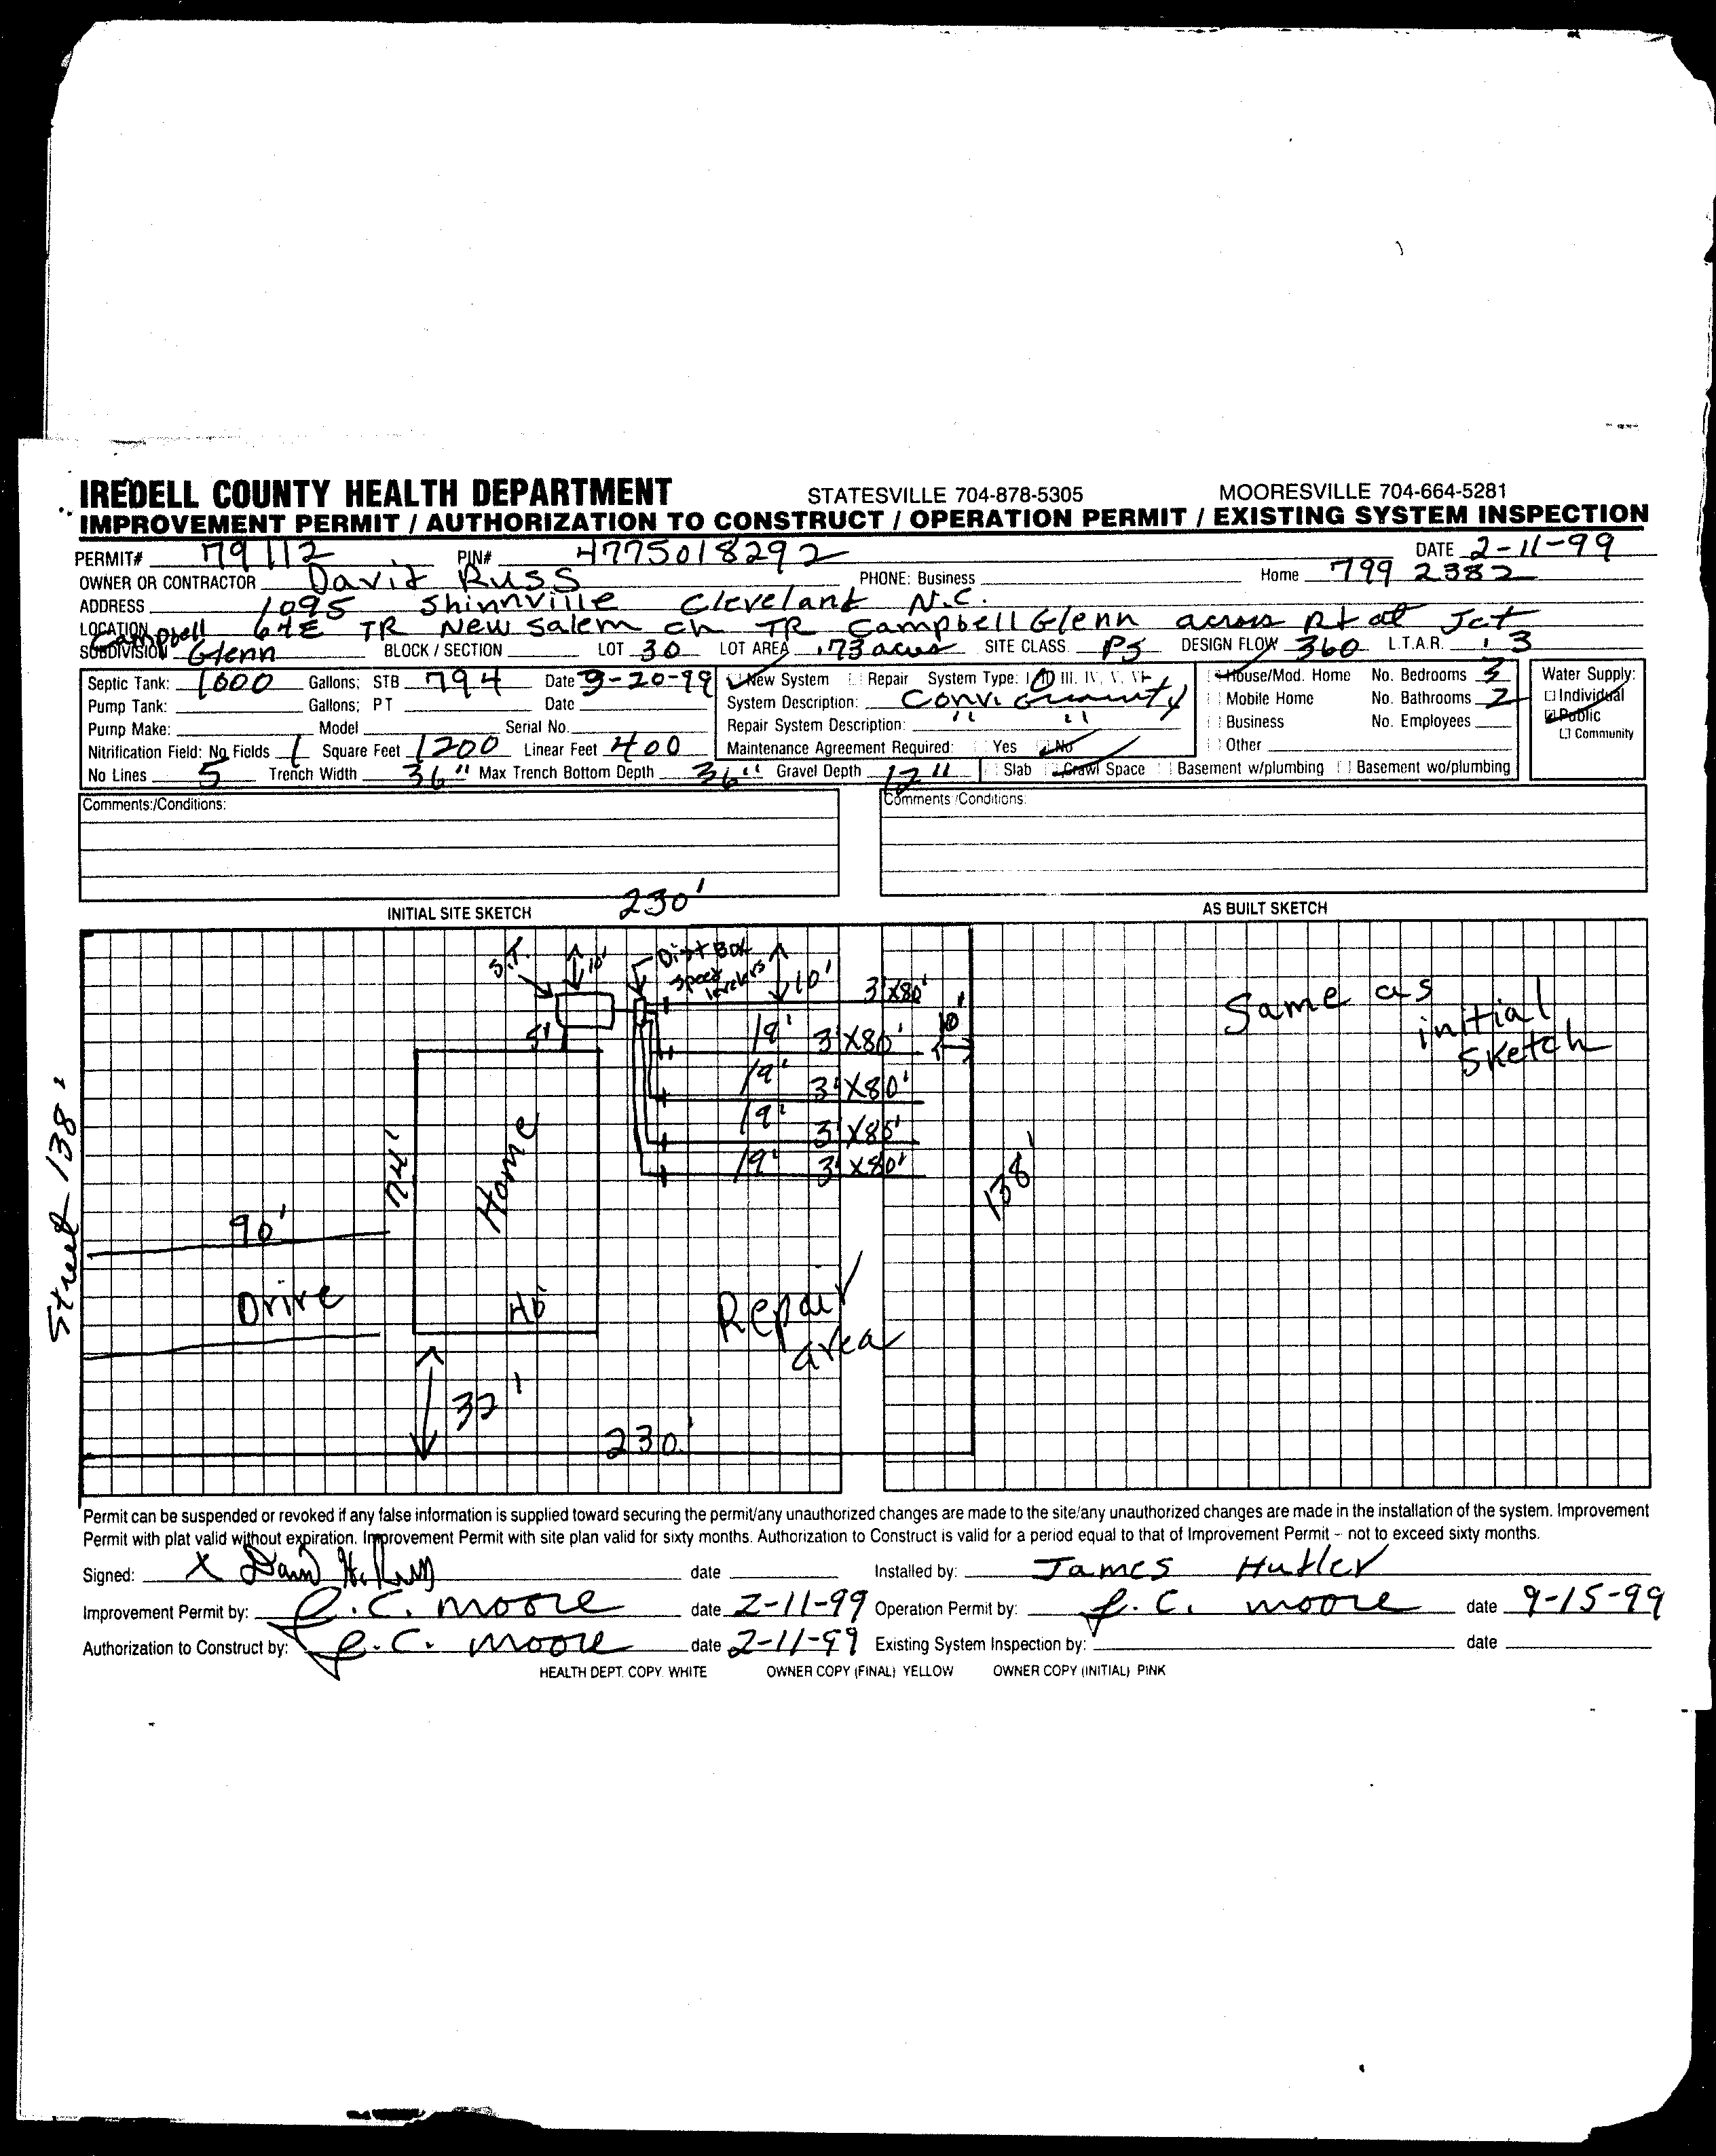 IREDELL COUNTY HEALTH DEPARTMENT STATESVILLE 704-878-5305 MOORESVILLE 704-664-5281
IMPROVEMENT PERMIT / AUTHORIZATION TO CONSTRUCT / OPERATION PERMIT / EXISTING SYSTEM INSPECTION
PERMIT# 79112 PIN# 4775018292 DATE 2-11-99
OWNER OR CONTRACTOR David Russ PHONE: Business Home 799 2382
ADDRESS 1095 Shinnville Cleveland N.C.
LOCATION 64E TR New Salem ch TR Campbell Glenn across Rt at Jct
SUBDIVISION Campbell Glenn BLOCK / SECTION LOT 30 LOT AREA .73 acres SITE CLASS. PS DESIGN FLOW 360 L.T.A.R. .3
Septic Tank: 1000 Gallons; STB 794 Date 9-20-99 New System Repair System Type: I, II, III, IV, V, VI House/Mod. Home No. Bedrooms 3 Water Supply:
Pump Tank: Gallons; PT Date System Description: Conv. Gravity Mobile Home No. Bathrooms 2 Individual
Pump Make: Model Serial No. Repair System Description: " " Business No. Employees Public
Nitrification Field: No. Fields 1 Square Feet 1200 Linear Feet 400 Maintenance Agreement Required: Yes No Other Community
No Lines 5 Trench Width 36" Max Trench Bottom Depth 36" Gravel Depth 12" Slab Crawl Space Basement w/plumbing Basement wo/plumbing
Comments:/Conditions: Comments /Conditions:
INITIAL SITE SKETCH 230' AS BUILT SKETCH
S.T. 10' Dist Box
Speed levelers 10' 3'X80'
5' 19' 3'X80' 10'
19' 3'X80'
19' 3'X80'
19' 3'X80'
Same as
initial
Sketch
Street 138'
74'
Home
138'
90'
Drive
40'
Repair
area
32'
230'
Permit can be suspended or revoked if any false information is supplied toward securing the permit/any unauthorized changes are made to the site/any unauthorized changes are made in the installation of the system. Improvement
Permit with plat valid without expiration. Improvement Permit with site plan valid for sixty months. Authorization to Construct is valid for a period equal to that of Improvement Permit - not to exceed sixty months.
Signed: X David H. Russ date Installed by: James Hutler
Improvement Permit by: J.C. Moore date 2-11-99 Operation Permit by: J.C. Moore date 9-15-99
Authorization to Construct by: J.C. Moore date 2-11-99 Existing System Inspection by: date
HEALTH DEPT. COPY WHITE OWNER COPY (FINAL) YELLOW OWNER COPY (INITIAL) PINK